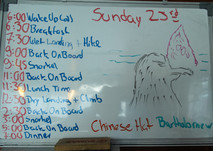 Sunday 23rd
6:00 Wake Up Call
6:30 Breakfast
7:30 Wet Landing + Hike
9:00 Back On Board
9:45 Snorkel
11:00 Back On Board
11:30 Lunch Time
12:30 Dry Landing + Climb
Back On Board
Snorkel
Back On Board
7:00 Dinner
Chinese Hat
Bartholomew